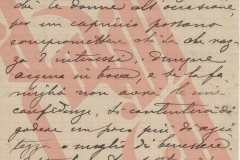 che le donne all'occasione,
per un capriccio possono
compromettere chi le
ga d'interesse, dunque
acqua in bocca, e la fa
miglia non avrà le mie
confidenze. Si contenterà di
godere un poco più di agia
tezza o meglio di benessere